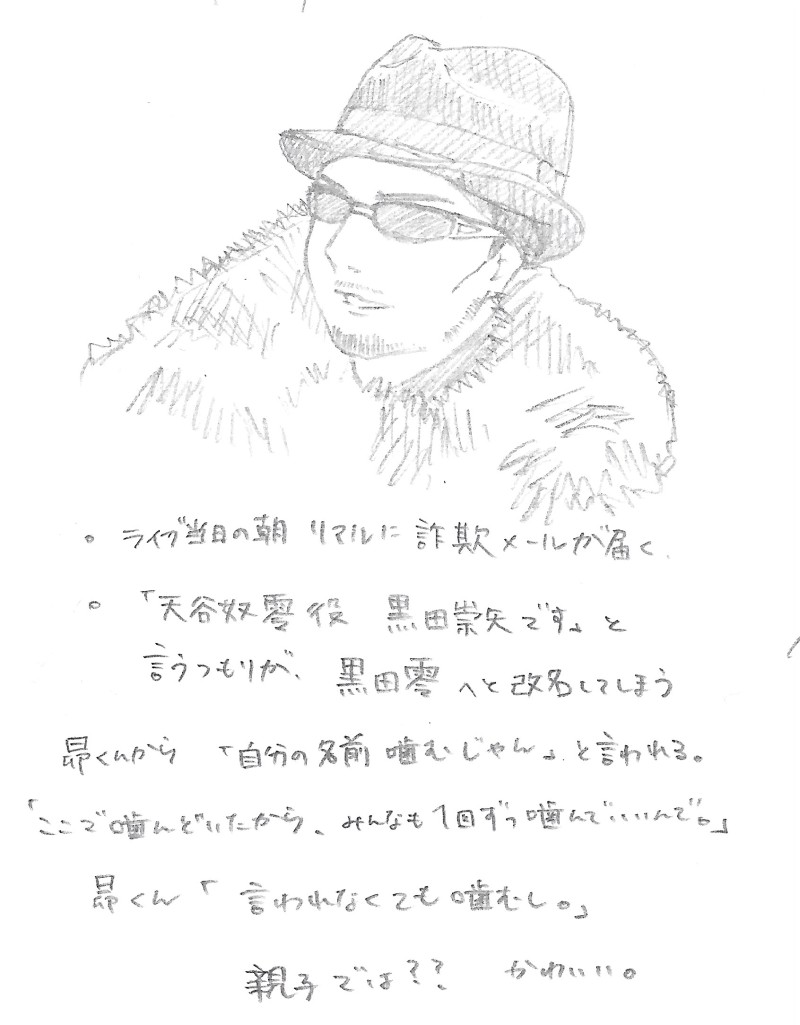 。ライブ当日の朝 リアルに 詐欺メールが届く.
。「天谷奴零役 黒田崇矢です」と
言うつもりが、黒田零 へと改名してしまう
昴くんから 「自分の名前 噛むじゃん」と言われる。
「ここで噛んどいたから、みんなも1回ずつ噛んでいいんで。」
昴くん「言われなくても噛むし。」
親子では?? かわいい。